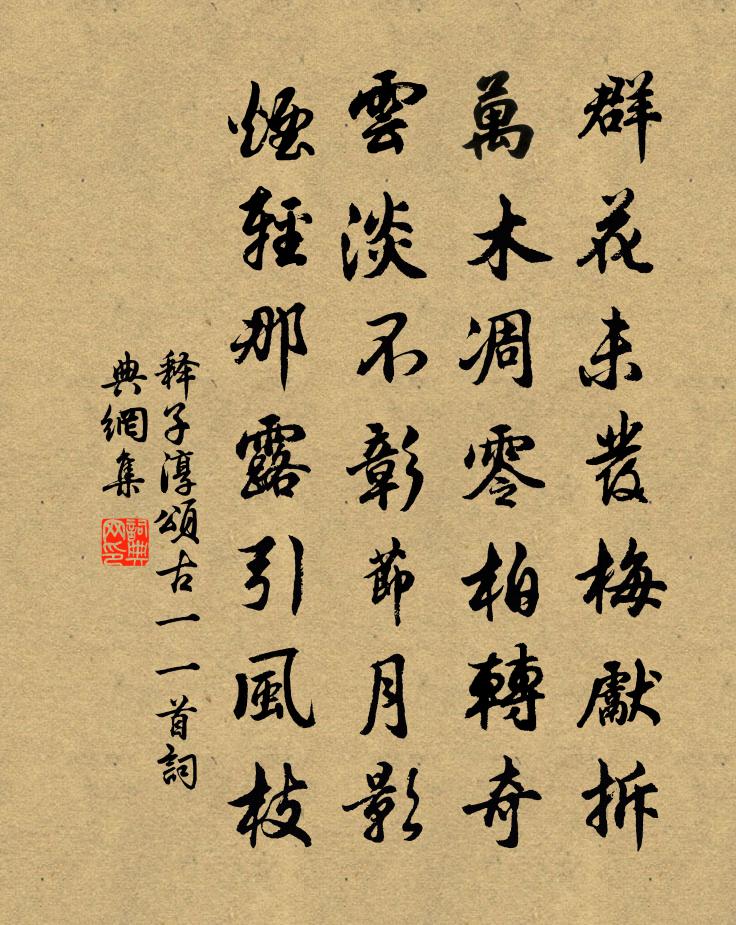 群花未發梅獻拆
萬木凋零柏轉奇
雲淡不彰節月影
煙輕那露引風枝
释子淳頌古一一首詞
典網集
詞典网印